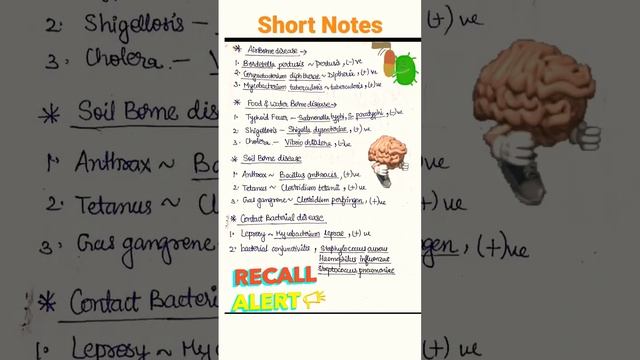 Short Notes
* Airborne disease →
1. Bordetella pertusis ~ Pertusis, (-)ve
2. Corynebacterium diptherae ~ Diptheria, (+)ve
3. Mycobacterium tuberculosis ~ tuberculosis, (+)ve
* Food & water Borne disease →
1. Typhoid Fever ~ Salmonella typhi, S. paratyphi, (-)ve
2. Shigellosis ~ Shigella dysenteriae, (-)ve
3. Cholera ~ Vibrio cholera, (-)ve
* Soil Borne disease
1. Anthrax ~ Bacillus anthracis, (+)ve
2. Tetanus ~ Clostridium tetani, (+)ve
3. Gas gangrene ~ Clostridium perfringen, (+)ve
* Contact Bacterial disease
1. Leprosy ~ Mycobacterium leprae, (+)ve
2. bacterial conjunctivitis, Staphylococcus aureus
Haemophilus influenzae
Streptococcus pneumoniae
RECALL
ALERT
2. Shigellosis –
3. Cholera. –
* Soil Borne dise
1. Anthrax ~ Ba
2. Tetanus ~ C
3. Gas gangrene
* Contact Bacteri
1. Leprosy ~ My
(+)ve
gen, (+)ve
(+)ve